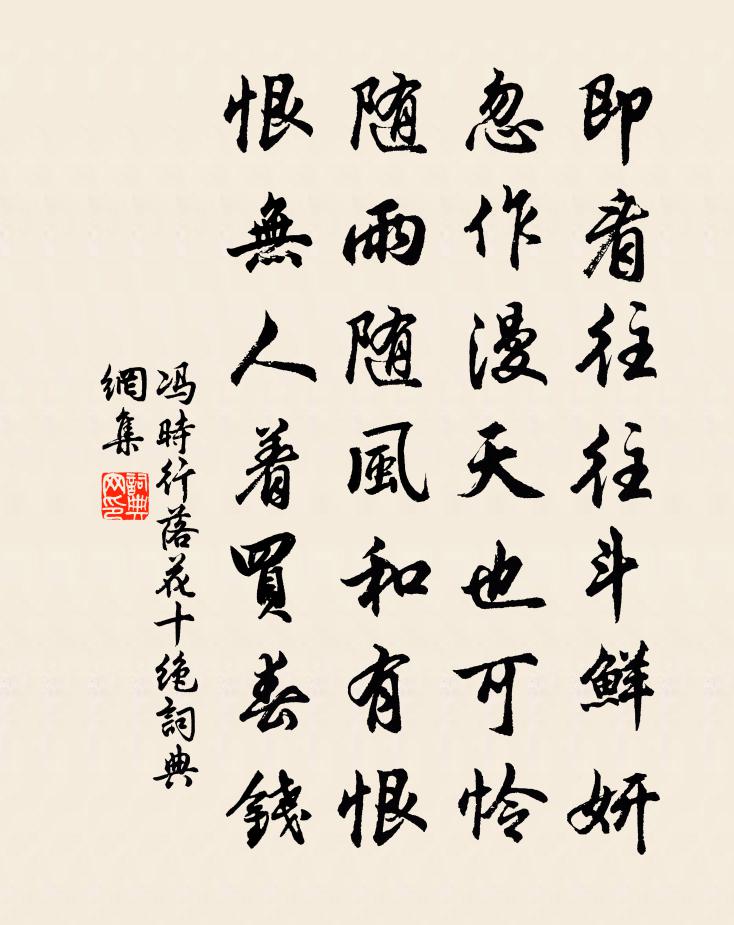 即看往往斗鮮妍
忽作漫天也可怜
随雨随風和有恨
恨無人着買春錢
冯時行落花十絶詞典
網集
詞典
网印